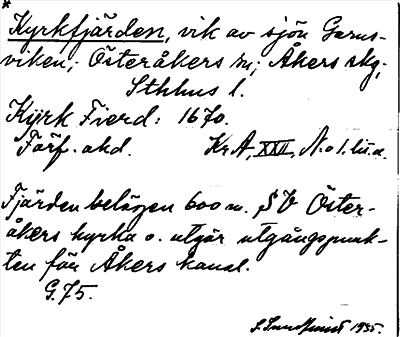 *
Kyrkfjärden, vik av sjön Garns-
viken; Österåkers sn; Åkers skg;
Sthlms l.
Kÿrk Fierd: 1670.
Förf. okd. Kr A, XXII, N:o 1. lit. a.
Fjärden belägen 600 m. SV Öster-
åkers kyrka o. utgör utgångspunk-
ten för Åkers kanal.
G. 75.
1935.